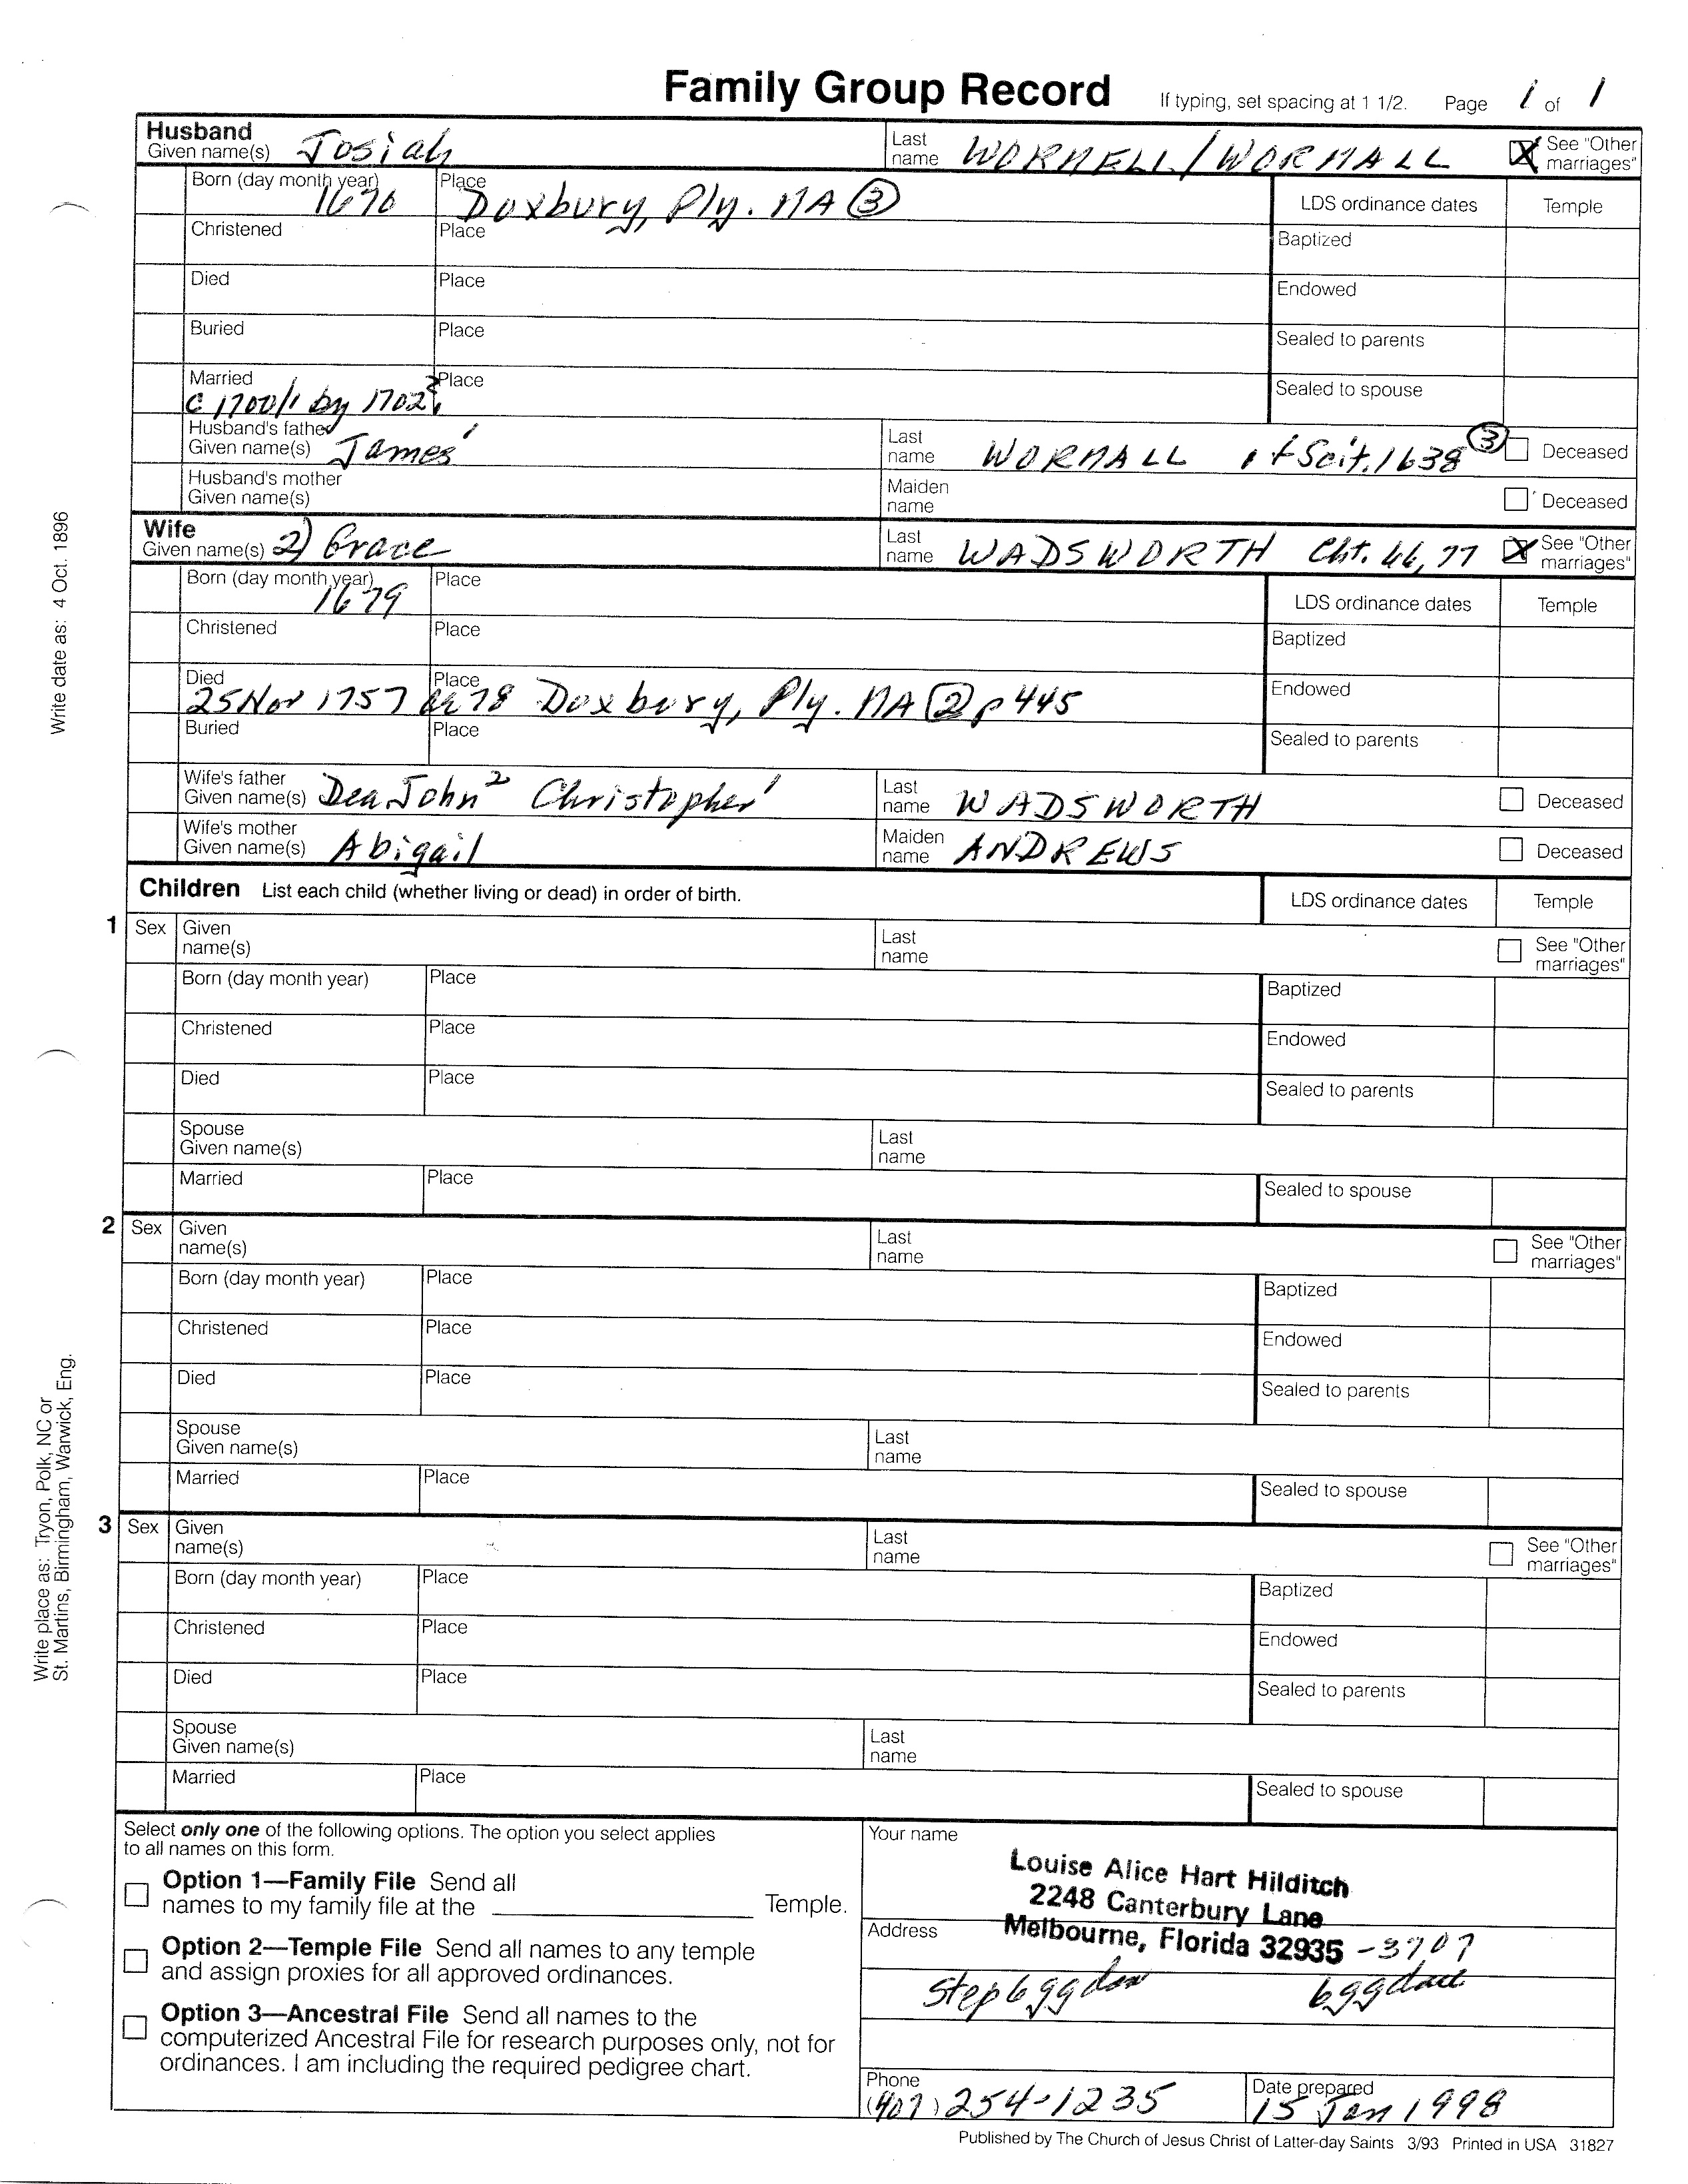 Family Group Record If typing, set spacing at 1 1/2. Page 1 of 1
Husband
Given name(s) Josiah Last name WORMELL/WORMALL See "Other marriages"
Born (day month year) 1670 Place Duxbury, Ply. MA ③ LDS ordinance dates Temple
Christened Place Baptized
Died Place Endowed
Buried Place Sealed to parents
Married c 1700/1 by 1702 Place Sealed to spouse
Husband's father Given name(s) James¹ Last name WORMALL of Scit. 1638 ③ Deceased
Husband's mother Given name(s) Maiden name Deceased
Wife
Given name(s) 2) Grace Last name WADSWORTH Cht. 46, 77 See "Other marriages"
Born (day month year) 1679 Place LDS ordinance dates Temple
Christened Place Baptized
Died 25 Nov 1757 ae 78 Place Duxbury, Ply. MA ② p 445 Endowed
Buried Place Sealed to parents
Wife's father Given name(s) Dea John² Christopher¹ Last name WADSWORTH Deceased
Wife's mother Given name(s) Abigail Maiden name ANDREWS Deceased
Children List each child (whether living or dead) in order of birth. LDS ordinance dates Temple
1 Sex Given name(s) Last name See "Other marriages"
Born (day month year) Place Baptized
Christened Place Endowed
Died Place Sealed to parents
Spouse Given name(s) Last name
Married Place Sealed to spouse
2 Sex Given name(s) Last name See "Other marriages"
Born (day month year) Place Baptized
Christened Place Endowed
Died Place Sealed to parents
Spouse Given name(s) Last name
Married Place Sealed to spouse
3 Sex Given name(s) Last name See "Other marriages"
Born (day month year) Place Baptized
Christened Place Endowed
Died Place Sealed to parents
Spouse Given name(s) Last name
Married Place Sealed to spouse
Select only one of the following options. The option you select applies
to all names on this form.
Option 1—Family File Send all
names to my family file at the Temple.
Option 2—Temple File Send all names to any temple
and assign proxies for all approved ordinances.
Option 3—Ancestral File Send all names to the
computerized Ancestral File for research purposes only, not for
ordinances. I am including the required pedigree chart.
Your name
Louise Alice Hart Hilditch
2248 Canterbury Lane
Address Melbourne, Florida 32935 -3707
Phone (407) 254-1235 Date prepared 15 Jan 1998
Published by The Church of Jesus Christ of Latter-day Saints 3/93 Printed in USA 31827
Write date as: 4 Oct. 1896
Write place as: Tryon, Polk, NC or
St. Martins, Birmingham, Warwick, Eng.